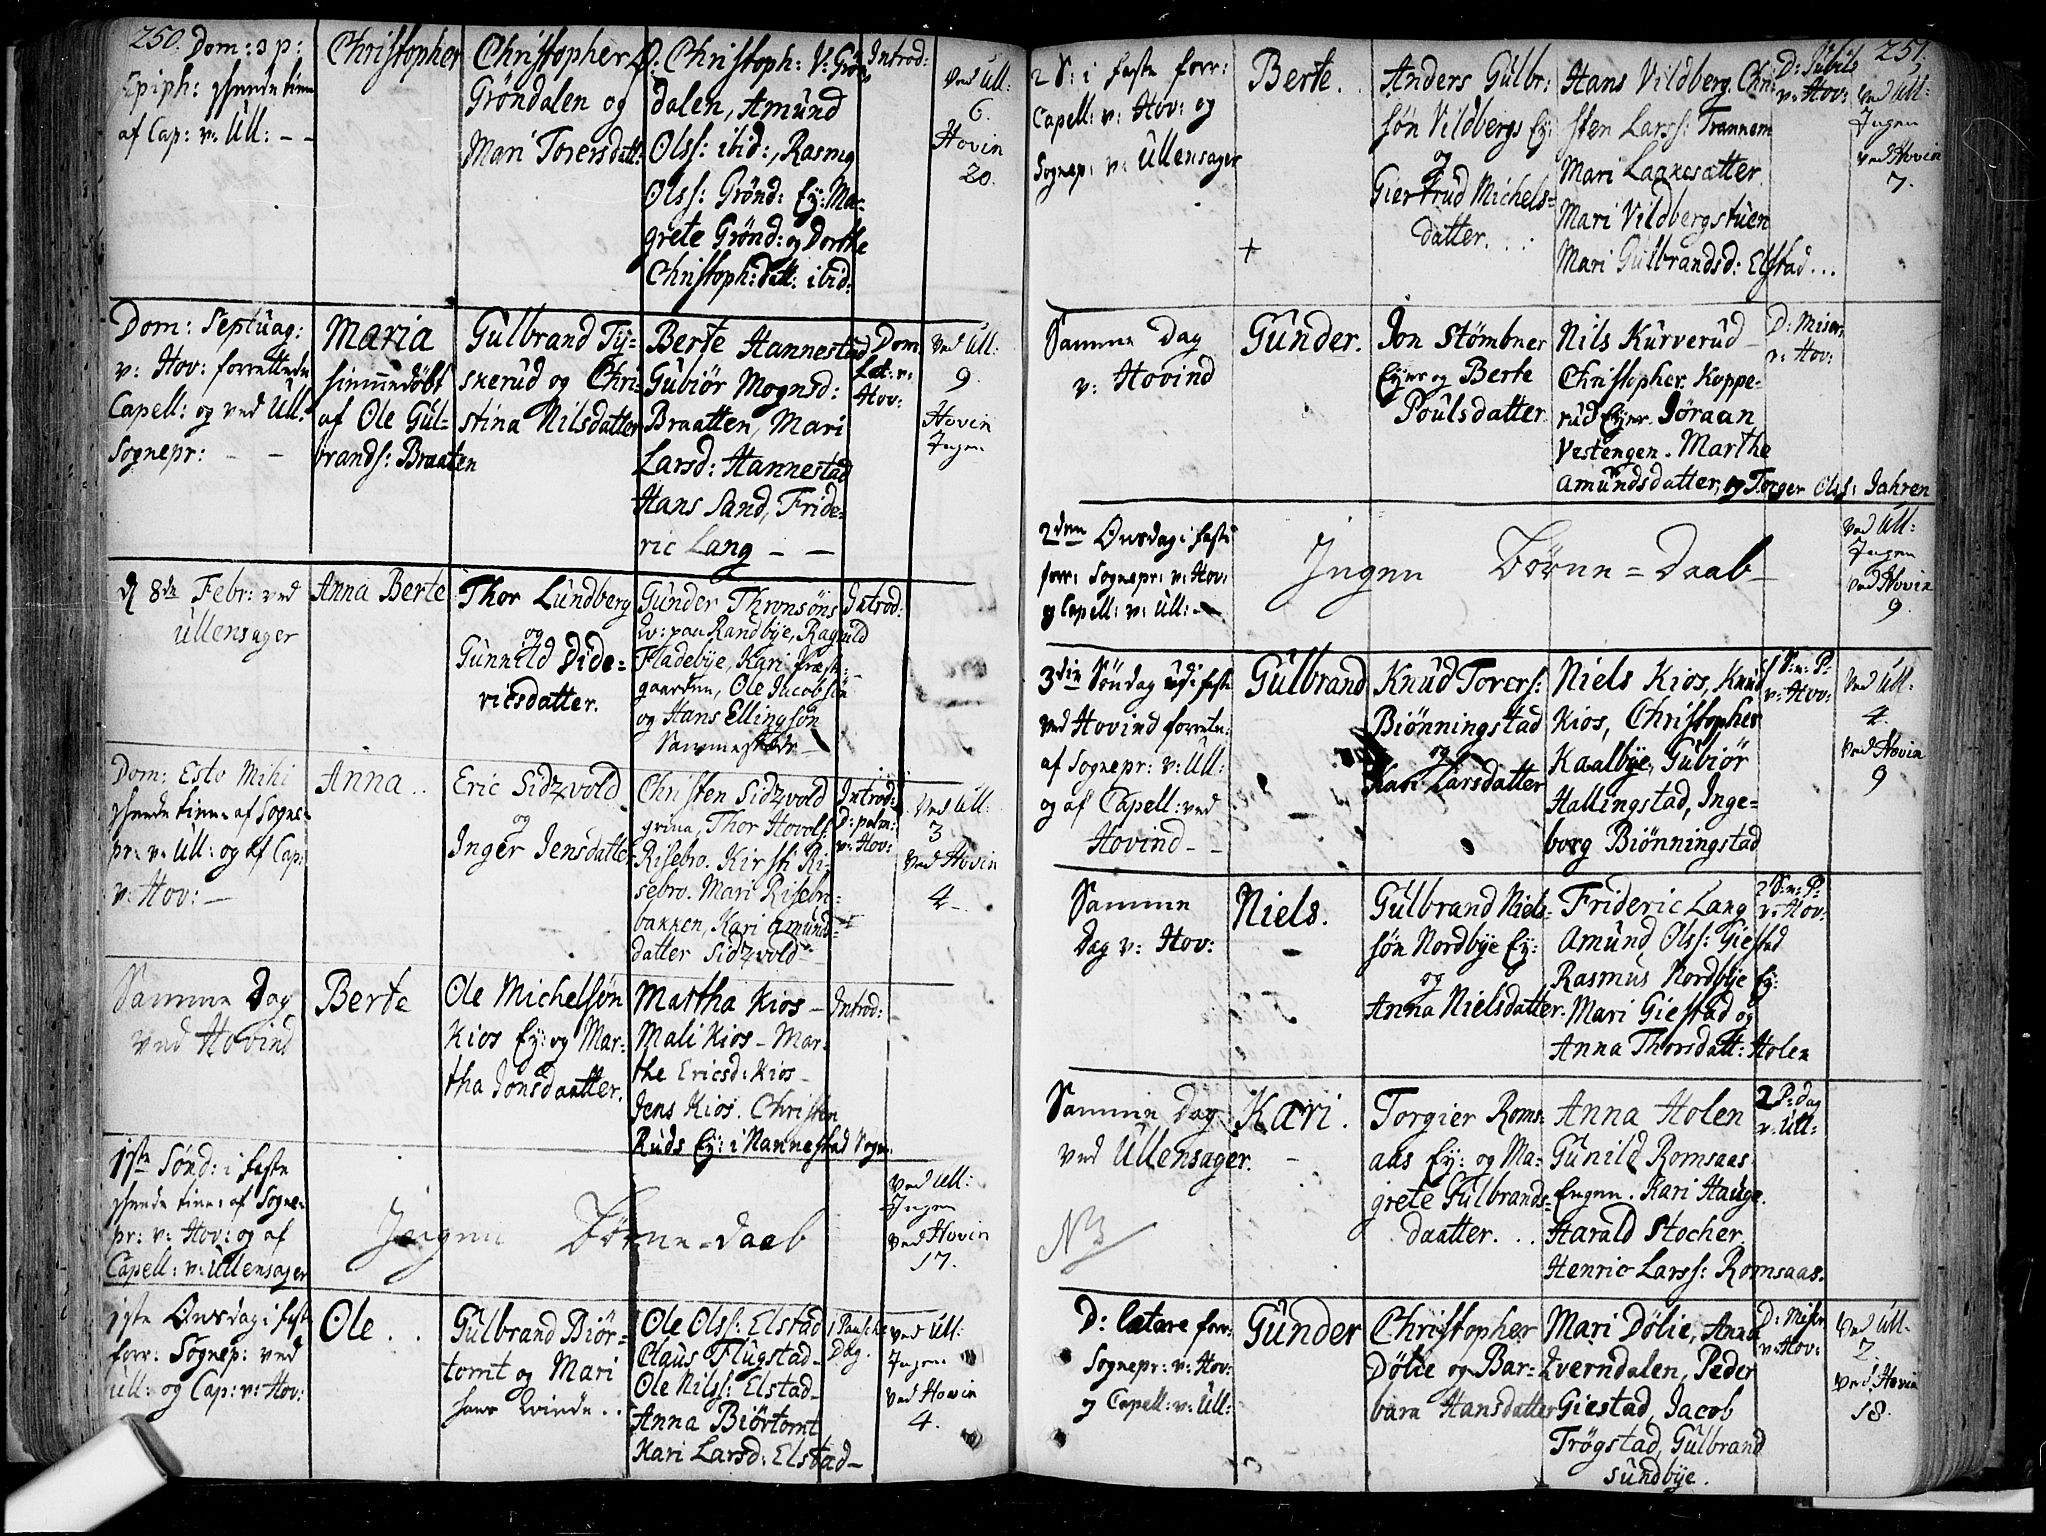 250. Dom: 3 p:
Epiph: 
af Cap: v: Ull: - -
Christopher
Christopher
Gröndalen og
Mari Torersdatt:
Christoph: V: Grön
dalen, Amund
Olss: ibid:, Rasmg
Olss: Grönd: Ey: Mar-
grete Grönd: og Dorthe
Christoph: datt: ibid:
Introd:
Ved Ull:
6.
Hovin
20.
Dom: Septuag:
v: Hov: forrettede
Capell: og ved Ull:
Sognepr: - -
Maria
hiemmedöbt
af Ole Gul-
brands: Braaten
Gulbrand Ty-
skerud og Chri-
stina Nilsdatter
Berte Hannestad
Gubiör Mognsd:
Braatten, Mari
Larsd: Hannestad
Hans Sand, Fride-
ric Lang - -
Dom:
Læt: v:
Hov:
Ved Ull:
9.
Hovin
Ingen
d 8de Febr: ved
Ullensager
Anna Berte
Thor Lundberg
og
Gunnild Dide-
ricsdatter.
Gunder Thronsöns
Qv: paa Randbye, Ragnild
Fladebye, Kari Præste-
gaarden, Ole Jacobsön
og Hans Ellingsön
Sammestæds -
Introd:
Dom: Esto Mihi
af Sogne-
pr: v: Ull: og af Cap:
v: Hov: -
Anna..
Eric Sidzvold
og
Inger Jensdatter
Christen Sidzvold
grina, Thor Hovols:
Risebro. Kirsti Ri-
sebro. Mari Risebro-
bakken, Kari Amunds-
datter Sidzvold
Introd:
D: palm:
v: Hov:
Ved Ull:
3.
Ved Hovin
4-
Samme Dag
ved Hovind
Berte
Ole Michelsön
Kios Ey: og Mar-
tha Jonsdaatter.
Martha Kios -
Mali Kios - Mar-
the Ericsd: Kios -
Jens Kios. Christen
Ruds Ey: i Nannestad Sogn.
Introd:
1ste Sönd: i faste
af Sogne-
pr: v: Hov: og af
Capell: v: Ullensager
Ingen Börne-daab
Ved Ull:
Ingen
ved Hovin
17.
1ste Onsdag i faste
forr: Sognep: ved
Ull: og Cap: v: Hov:
Ole..
Gulbrand Biör-
tomt og Mari
hans Qvinde..
Ole Olss: Elstad
Claus Flugstad -
Ole Nilss: Elstad -
Anna Biörtomt
Kari Larsd: Elstad -
1 Paaske
Dag.
ved Ull:
Ingen
ved Hovin
4.
251
2 S: i faste forr:
Capell: v: Hov: og
Sognep: v: Ullensager
Berte..
+
Anders Gulbr:
sön Vildbergs Ey:
og
Giertrud Michels-
datter...
Hans Vildberg. Chri-
sten Larss: Trannem
Mari Laakesætter.
Mari Vildbergstuen
Mari Gulbrandsd: Elstad...
D: Jubil
v: Hov:
Ved Ull:
Ingen
ved Hovin
7.
Samme Dag
v: Hovind
Gunder.
Jon Stömbner
Eyer og Berte
Poulsdatter
Nils Kurverud -
Christopher Koppe-
rud Eyer. Jöraan
Vestengen. Marthe
Amundsdatter, og Torger Olss: Jahren
D: Miser:
v: Hov:
2den Onsdag i faste
forr: Sognepr: v: Hov:
og Capell: v: Ull: -
Ingen Börne=daab -
Ved Ull:
Ingen
ved Hovin
9.
3die Söndag udi faste
ved Hovind forrett:
af Sognepr: v: Ull:
og af Capell: ved
Hovind - -
Gulbrand
Knud Torers:
Biönningstad
og
Kari Larsdatter
Niels Kios, Knud
Kios, Christopher
Kaalbye, Gubiör
Hallingstad, Inge-
borg Biönningstad
1 S: v: P:
v: Hov:
Ved Ull:
4.
Ved Hovin
9
Samme
Dag v: Hov:
Niels.
Gulbrand Niels-
sön Nordbye Ey:
og
Anna Nielsdatter.
Frideric Lang
Amund Olss: Giestad
Rasmus Nordbye Ey:
Mari Giestad og
Anna Thorsdatt: Holen
2 S: v: P:
v: Hov:
Samme Dag
ved Ullensager.
NB
Kari.
Torgier Roms-
aas Ey: og Ma-
grete Gulbrands-
daatter...
Anna Holen
Gunild Romsaas
Engen. Kari Hauge.
Harald Stocher.
Henric Larss: Romsaas.
2 P: dag
v: Ull:
D: Lætare forr:
Sognepr: v: Hov:
og Capell: v: Ull:
Gunder
Christopher
Dölie og Bar-
bara Hansdatter
Mari Dölie, Anna
Qverndalen, Peder
Giestad, Jacob
Trögstad, Gulbrand
Sundbye.
D: Miser
v: Hov:
Ved Ull:
2.
Ved Hovin
18.